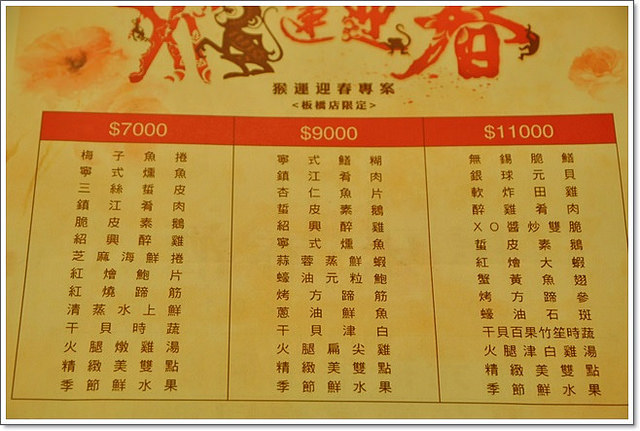 猴運迎春
猴運迎春專案
<板橋店限定>
$7000
梅子魚捲
寧式燻魚
三絲蜇皮
鎮江肴肉
脆皮素鵝
紹興醉雞
芝麻海鮮捲
紅燴鮑片
紅燒蹄筋
清蒸水上鮮
干貝時蔬
火腿燉雞湯
精緻美雙點
季節鮮水果
$9000
寧式鱔糊
鎮江肴肉
杏仁魚片
蜇皮素鵝
紹興醉雞
寧式燻魚
蒜蓉蒸鮮蝦
蠔油元粒鮑
烤方蹄筋
蔥油鮮魚
干貝津白
火腿扁尖雞
精緻美雙點
季節鮮水果
$11000
無錫脆鱔
銀球元貝
軟炸田雞
醉雞肴肉
XO醬炒雙脆
蜇皮素鵝
紅燴大蝦
蟹黃魚翅
烤方蹄參
蠔油石斑
干貝百果竹笙時蔬
火腿津白雞湯
精緻美雙點
季節鮮水果